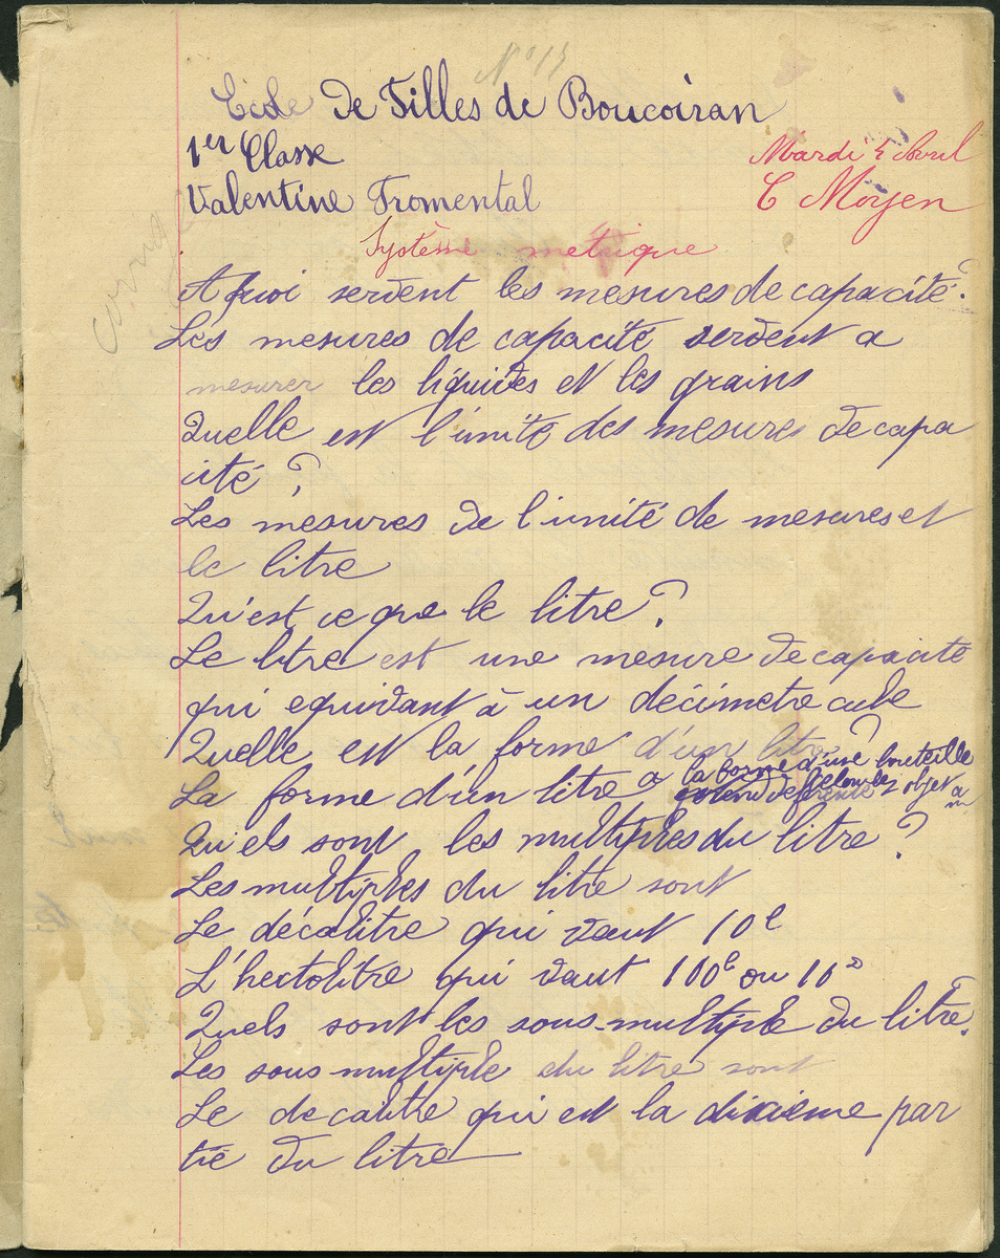 N° 15
Ecole De Filles de Boucoiran
1er Classe
Mardi 5 Avril
Valentine Fromental
C Moyen
Système metrique
corrigé
A quoi servent les mesures de capacité?
Les mesures de capacité servent a
mesurer les liquides et les grains
Quelle est l'unité des mesures de capa
cité?
Les mesures de l'unité de mesures et
le litre
Qu'est ce que le litre?
Le litre est une mesure de capacité
qui equivaut à un décimetre cube
Quelle est la forme d'un litre?
La forme d'un litre a la forme d'une bouteille
selon les objet a
Quels sont les multiples du litre?
Les multiples du litre sont
Le décalitre qui vaut 10l
L'hectolitre qui vaut 100l ou 10D
Quels sont les sous-multiple du litre?
Les sous-multiple du litre sont
Le decalitre qui est la dixieme par
tie du litre